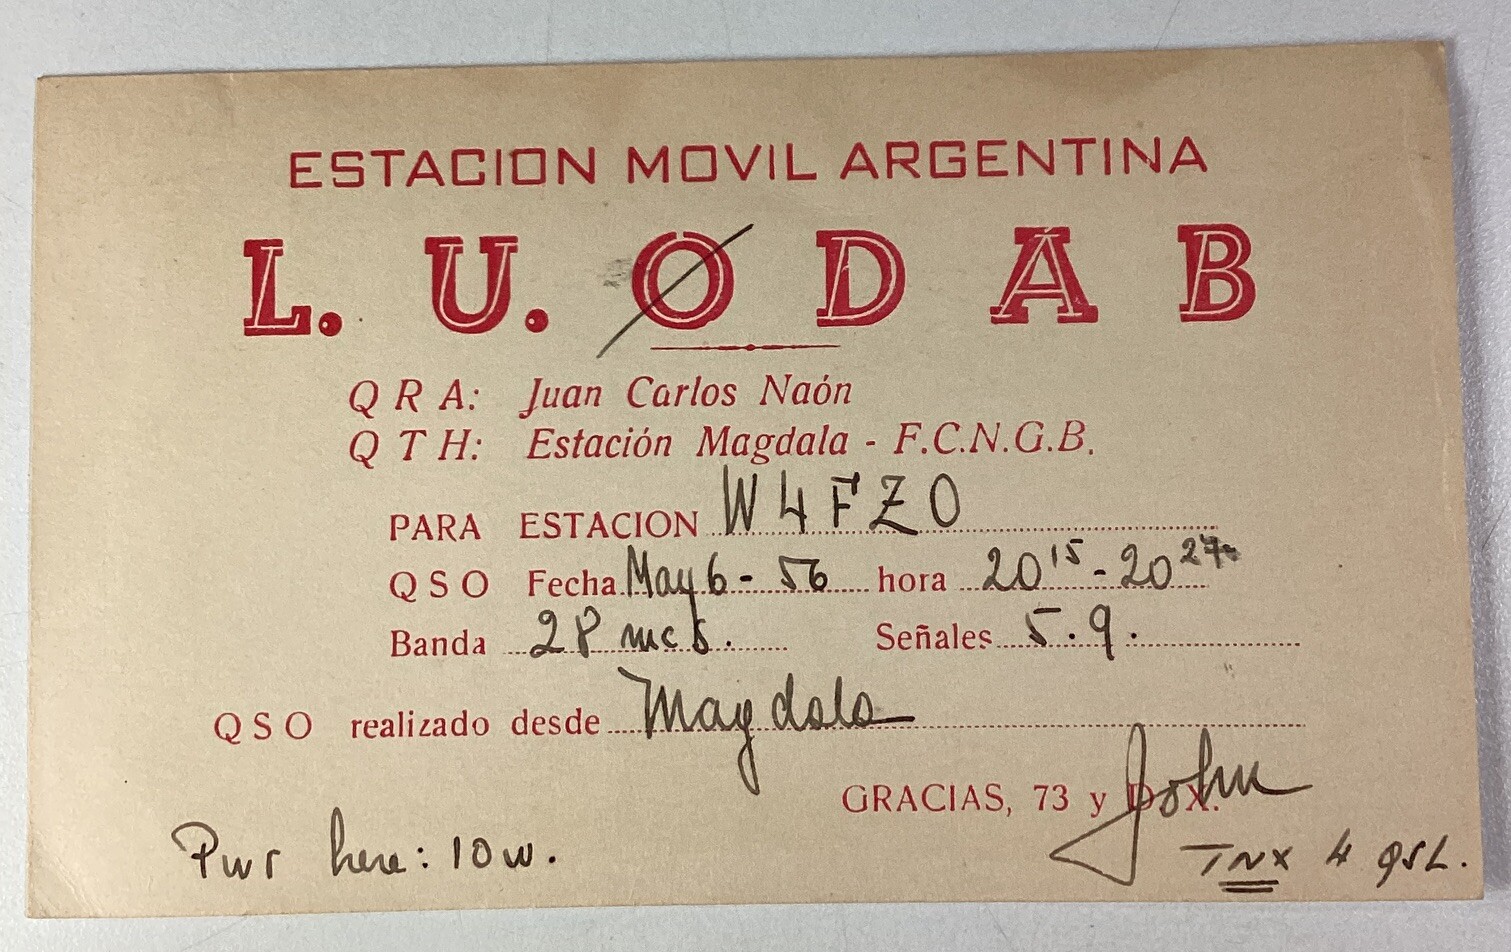 ESTACION MOVIL ARGENTINA
L. U. Ø D A B
Q R A: Juan Carlos Naón
Q T H: Estación Magdala - F.C.N.G.B.
PARA ESTACION W4FZO
QSO Fecha May 6 - 56 hora 20 15 - 20 27
Banda 28 mcs. Señales 5.9.
QSO realizado desde Magdala
GRACIAS, 73 y DX. John
Pwr here: 10 w. TNX 4 QSL.